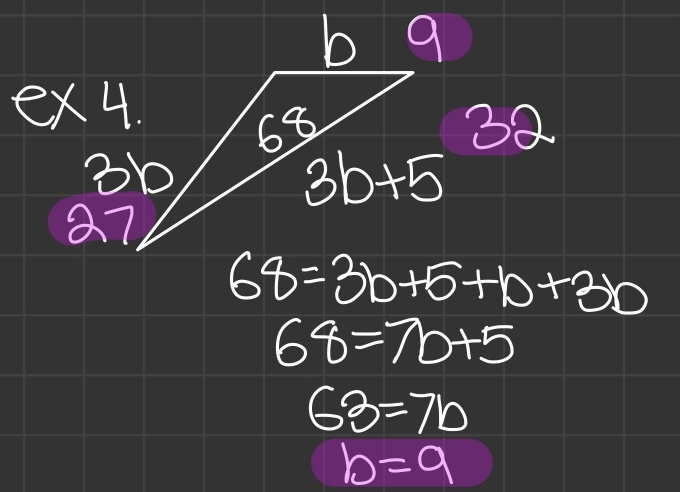 ex 4.
b
9
68
32
3b
3b+5
27
68=3b+5+b+3b
68=7b+5
63=7b
b=9